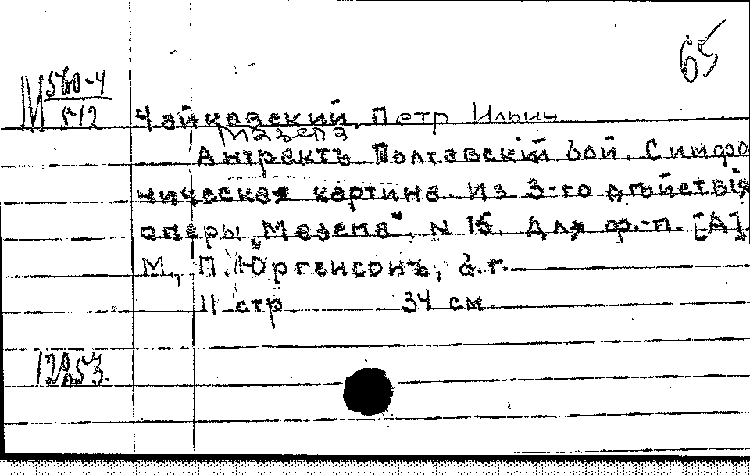 65
М 560-4
512
Чайковский, Петр Ильич
Мазепа
Антрактъ Полтавскій бой. Симфо
ническая картина. Из 3-го дѣйствія
оперы „Мазепа“, N 15. Для ф.-п. [А].
М., П. Юргенсонъ, б.г.
11 стр 34 см.
12853.